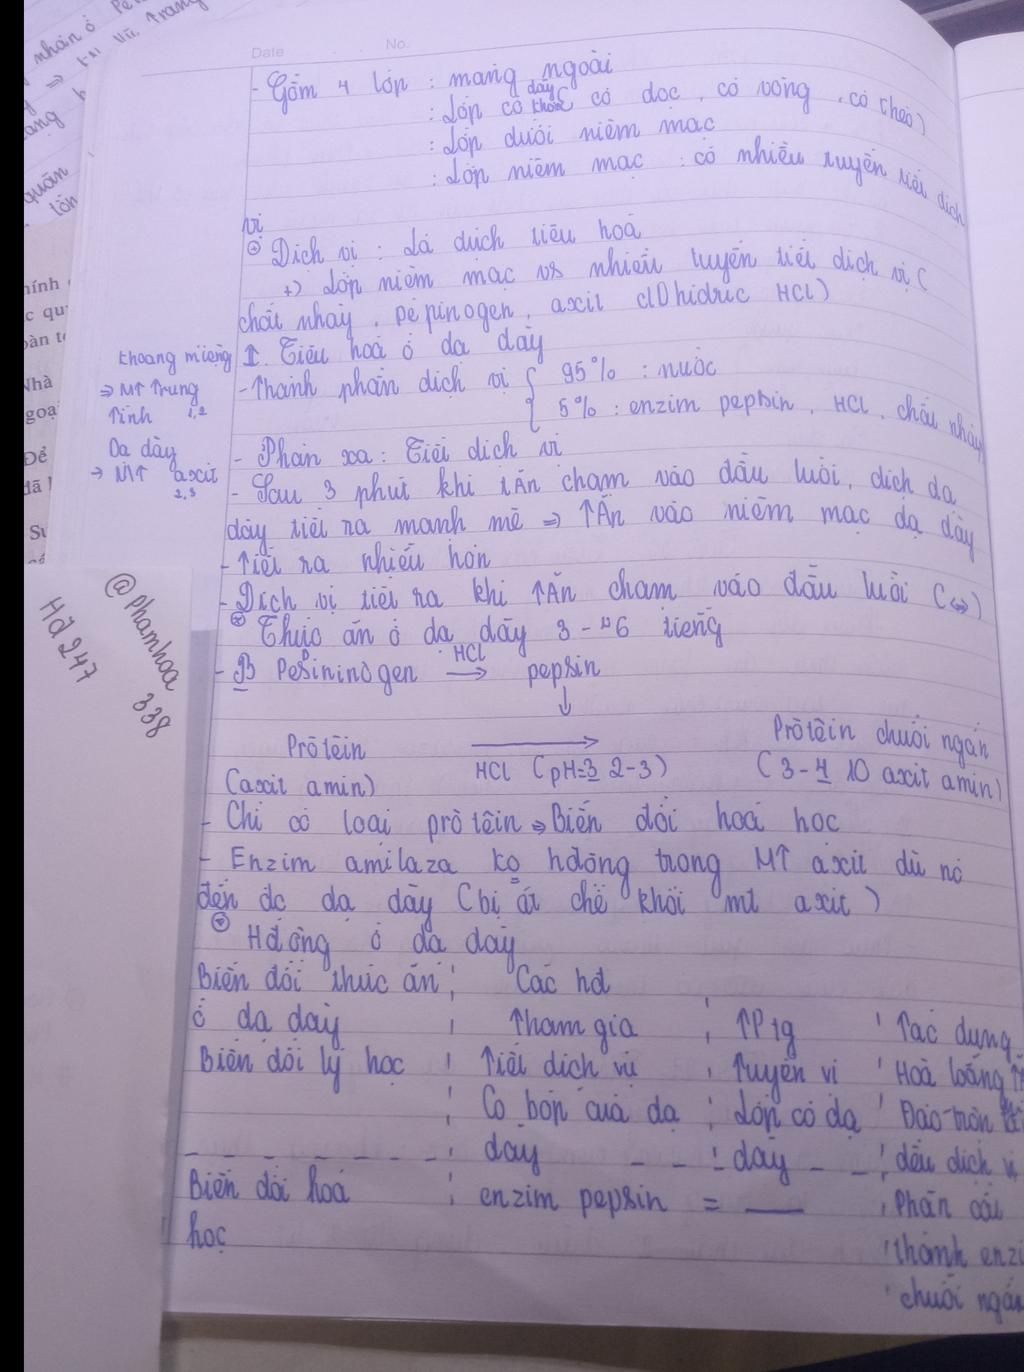 Date No.
- Gồm 4 lớp : màng ngoài
: Lớp cơ dày khoẻ cơ dọc, cơ vòng, cơ chéo)
: Lớp dưới niêm mạc
: Lớp niêm mạc : có nhiều tuyến tiết dịch
vị
Dịch vị : Là dịch tiêu hoá
+) Lớp niêm mạc vs nhiều tuyến tiết dịch vị (
chất nhày, pepinogen, axit clohidric HCl)
I. Tiêu hoá ở dạ dày
- Thành phần dịch vị { 95% : nước
5% : enzim pepsin, HCl, chất nhày
- Phản xạ : Tiết dịch vị
- Sau 3 phút khi tĂn chạm vào đầu lưỡi, dịch dạ
dày tiết ra mạnh mẽ => TĂn vào niêm mạc dạ dày
- Tiết ra nhiều hơn
- Dịch vị tiết ra khi TĂn chạm vào đầu lưỡi (<=>)
Thức ăn ở dạ dày 3 - 6 tiếng
- Pesininogen HCl → pepsin
↓
Prôtêin → Prôtêin chuỗi ngắn
(axit amin) HCl (pH=3 2-3) (3-4 10 axit amin)
- Chỉ có loại prôtêin => Biến đổi hoá học
- Enzim amilaza ko hđộng trong MT axit dù nó
đến đc dạ dày (bị ức chế khỏi mt axit)
Hđộng ở dạ dày
Biến đổi thức ăn Các hđ
ở dạ dày Tham gia TPtg Tác dụng
Biến đổi lý học Tiết dịch vị Tuyến vị Hoà loãng
Co bóp của dạ Lớp cơ dạ Đảo trộn
dày dày đều dịch vị
Biến đổi hoá enzim pepsin = Phân cắt
học thành enzi
chuỗi ngắn
khoang miệng
=> MT Trung
Tính 1,2
Dạ dày
→ MT axit
2,3
@phamhoa
338
Hđ 247